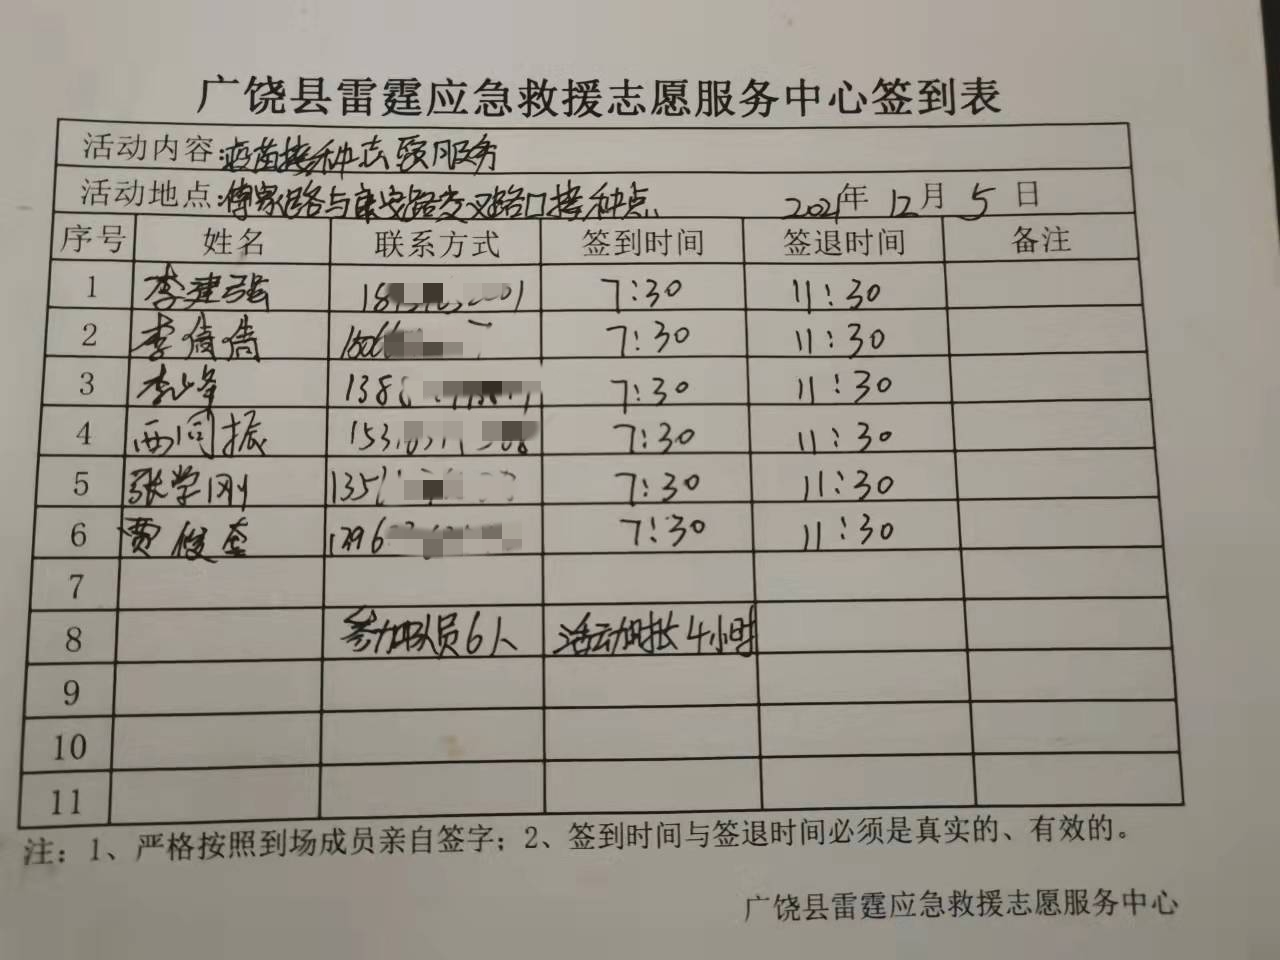 广饶县雷霆应急救援志愿服务中心签到表
活动内容:疫苗接种志愿服务
活动地点:傅家路与康安路交叉路口接种点 2021年 12月 5日
序号 姓名 联系方式 签到时间 签退时间 备注
1 李建强 7:30 11:30
2 李倩倩 7:30 11:30
3 李峰 138 7:30 11:30
4 西同振 153 7:30 11:30
5 张学刚 135 7:30 11:30
6 贾俊奎 1396 7:30 11:30
7
8 参加队员6人 活动时长4小时
9
10
11
注：1、严格按照到场成员亲自签字；2、签到时间与签退时间必须是真实的、有效的。
广饶县雷霆应急救援志愿服务中心